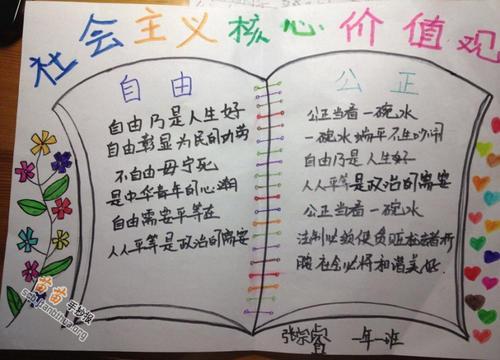 社会主义核心价值观
自由
自由乃是人生好
自由彰显为民的功劳
不自由毋宁死
是中华青年的心潮
自由需要平等在
人人平等是政治的需要
公正
公正当看一碗水
一碗水端平不生吵闹
自由乃是人生好
人人平等是政治的需要
公正当看一碗水
法制必须使贪
社会必将和谐美
张宗睿 一年一班
苗苗手抄报